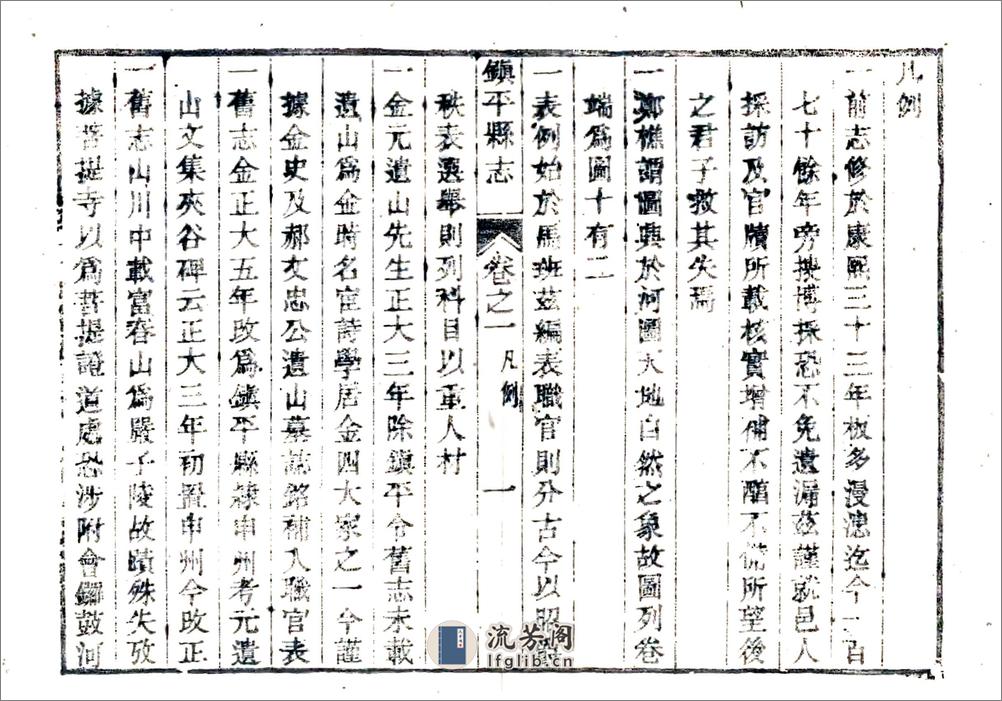 凡例
一前志修於康熙三十三年板多漫漶迄今一百
七十餘年旁搜博採恐不免遺漏茲謹就邑人
採訪及官牘所載核實增補不醜不備所望後
之君子救其失焉
一鄭樵謂圖興於河圖天地自然之象故圖列卷
端爲圖十有二
一表例始於馬班茲編表職官則分古今以昭
鎮平縣志
卷之一
凡例
一
秩表選舉則列科目以重人材
一金元遺山先生正大三年除鎮平令舊志未載
遺山爲金時名宦詩學居金四大家之一今謹
據金史及郝文忠公遺山墓誌銘補入職官表
一舊志金正大五年改爲鎮平縣隸申州考元遺
山文集夾谷碑云正大三年初置申州今改正
一舊志山川中載富春山爲嚴子陵故蹟殊失攷
據菩提寺以爲菩提證道處恐涉附會鑼鼓河
流芳阁
lfglib.cn